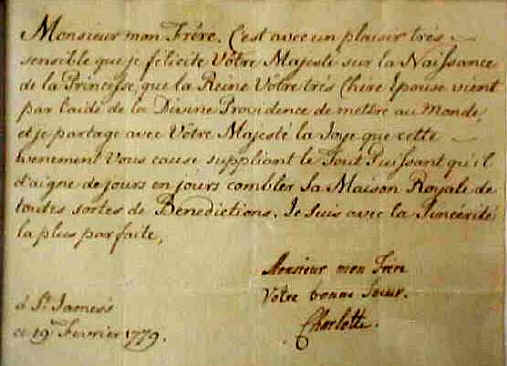 Monsieur mon Frére. C'est avec un plaisir trés
sensible que je félicite Vôtre Majesté sur la Naissance
de la Princesse, que la Reine Vôtre trés Chere Epouse vient
par l'aide de la Divine Providence de mettre au Monde,
et je partage avec Vôtre Majesté la Joye que cette
evenement Vous cause suppliant le Tout Puissant qu'il
d'aigne de jours en jours combler Sa Maison Royale de
toutes sortes de Benedictions. Je suis avec la Sincérité
la plus parfaite,
Monsieur mon Frére
Votre bonne Soeur.
Charlotte.
à St. James's
ce 19 Fevrier 1779.